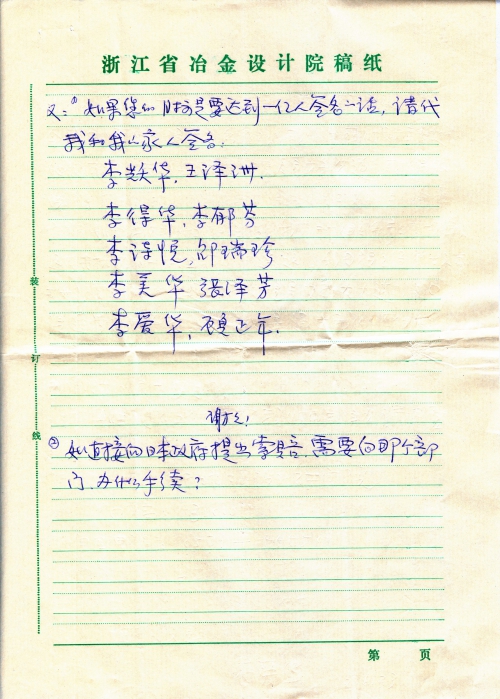 浙江省冶金设计院稿纸
又：①如果您的目标是要达到一亿人签名的话，请代
我和我的家人签名：
李焕华，王泽洲．
李得华，李郁芬
李诗悦，邱瑞珍
李美华 張泽芳
李爱华，顾正年．
谢谢！
②如直接向日本政府提出索賠，需要向那个部
门，办什么手续？
装
订
线
第 页